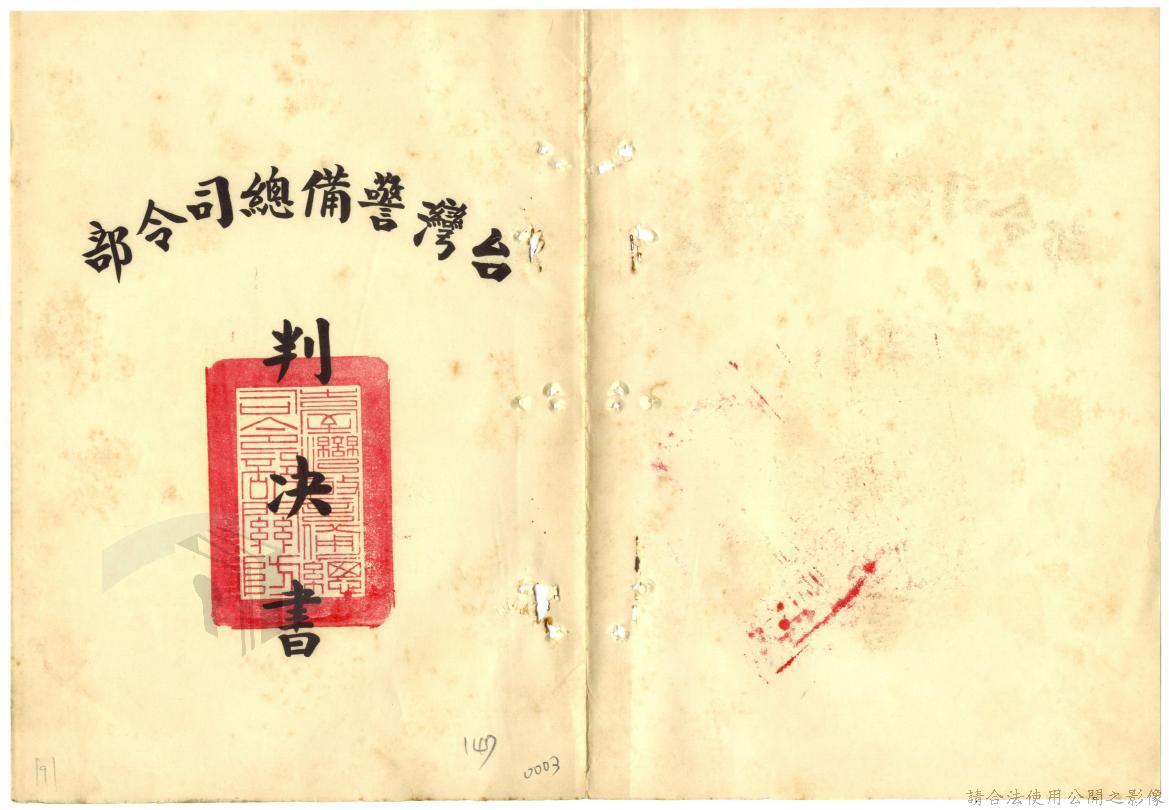 台灣警備總司令部
判決書
147
0003
191
請合法使用公開之影像